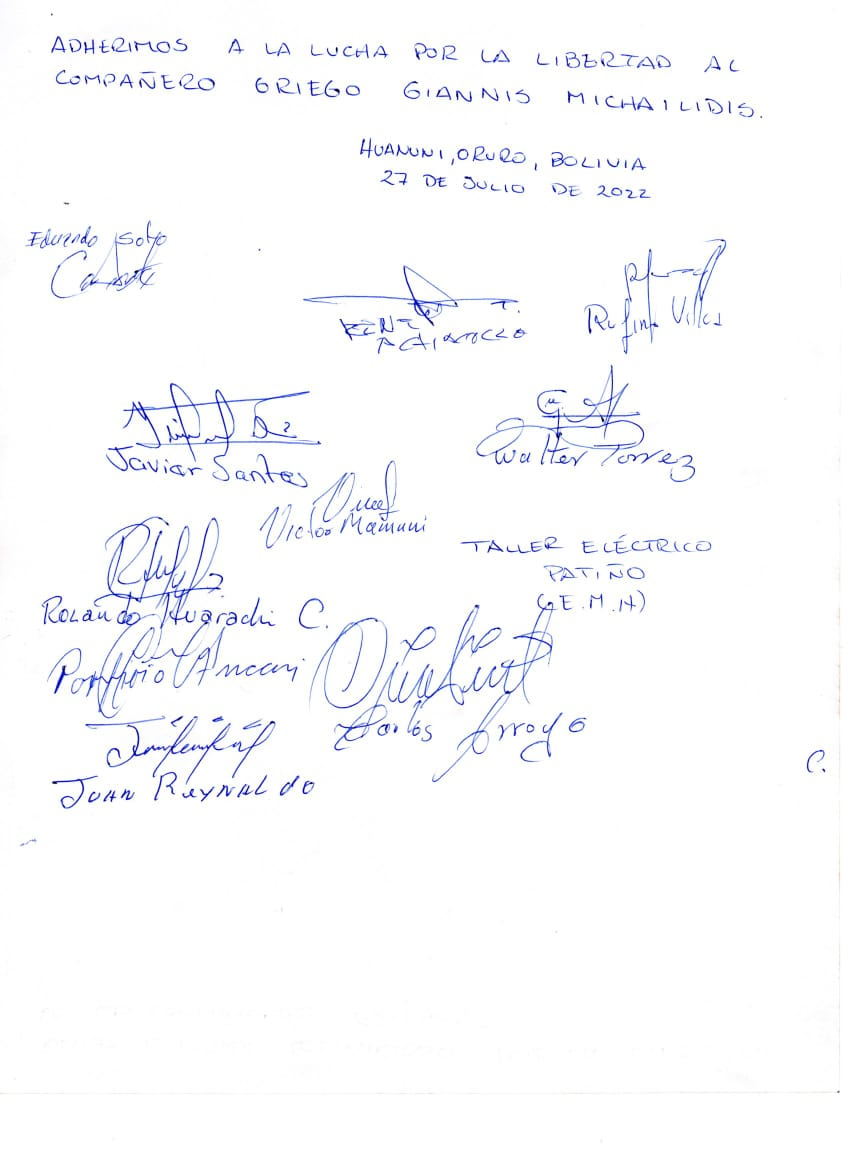 ADHERIMOS A LA LUCHA POR LA LIBERTAD AL
COMPAÑERO GRIEGO GIANNIS MICHAILIDIS.
HUANUNI, ORURO, BOLIVIA
27 DE JULIO DE 2022
Eduardo Soto
T.
Rufino Villca
Javier Santos
Walter Torrez
Victor Mamani
TALLER ELÉCTRICO
PATIÑO
(E.M.H)
Rolando Huarachi C.
Porfirio Ancari
Carlos Arroyo
C.
JUAN REYNALDO